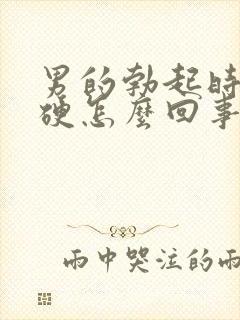 男的勃起時
硬怎麼回事
雨中哭泣的雨